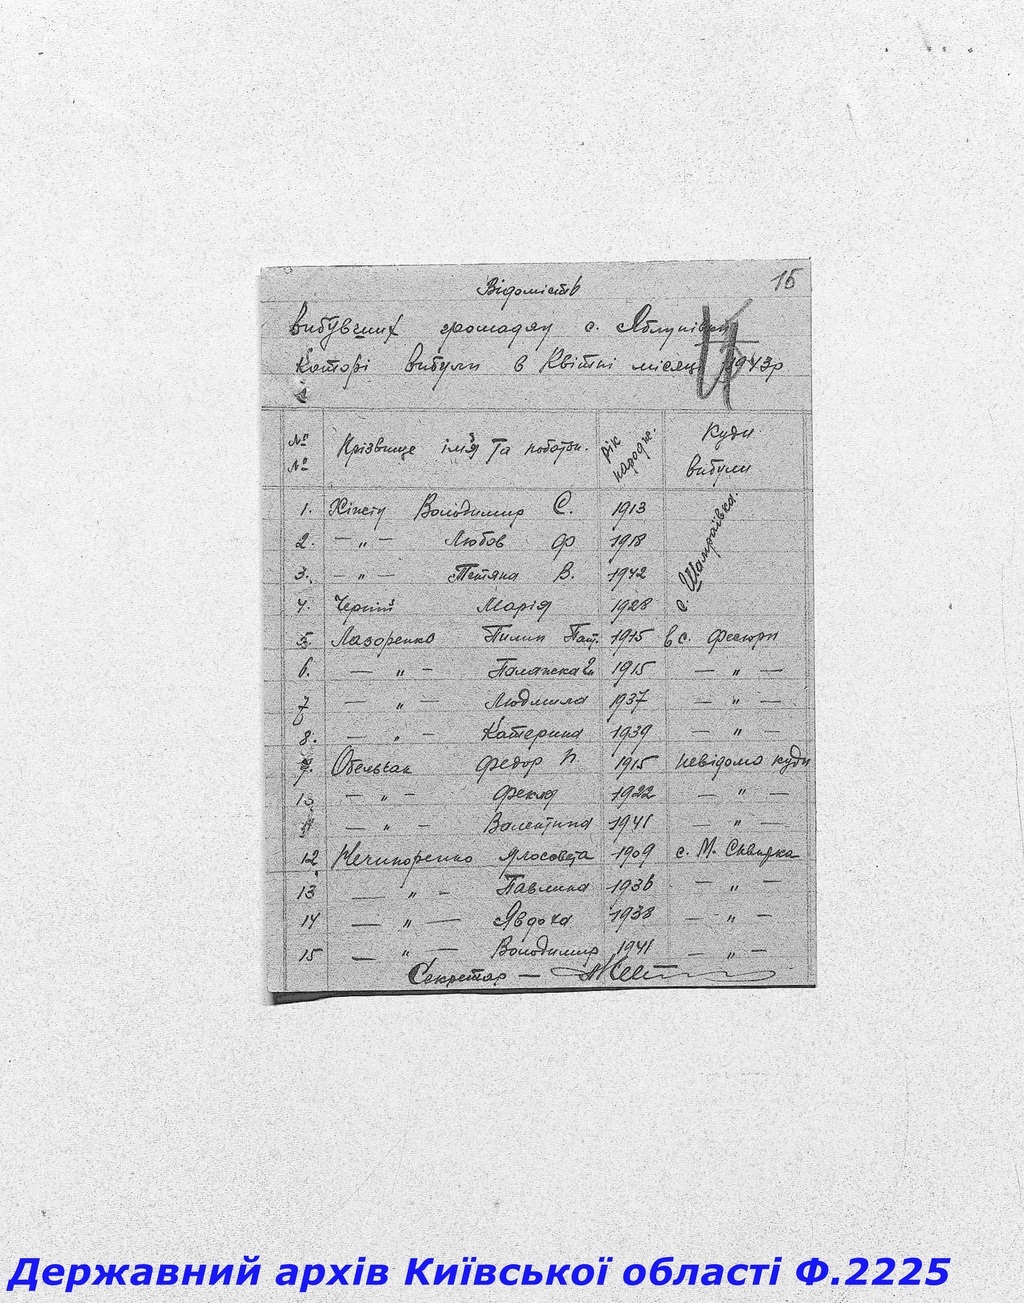 15
Відомість
вибувших громадян с. Яблунівки
Которі вибули в Квітні місяці 1943р
№ № Прізвище ім'я та побатьк. рік народж. Куди вибули
1. Володимир С. 1913 с. Шамраївка.
2. — " — Любов Ф 1918
3. — " — Тетяна В. 1942
4. Марія 1928
5. Лазоренко Пилип 1915 в с. Фесюри
6. — " — 1915 — " —
7 — " — Людмила 1937 — " —
8. — " — Катерина 1939 — " —
9. Федор П 1915 невідомо куди
10 — " — Фекла 1922 — " —
11 — " — Валентина 1941 — " —
12 Нечипоренко 1909 с. М. Сквирка
13 — " — Павлина 1936 — " —
14 — " — Явдоха 1938 — " —
15 — " — Володимир 1941 — " —
Секретар —
Державний архів Київської області Ф.2225